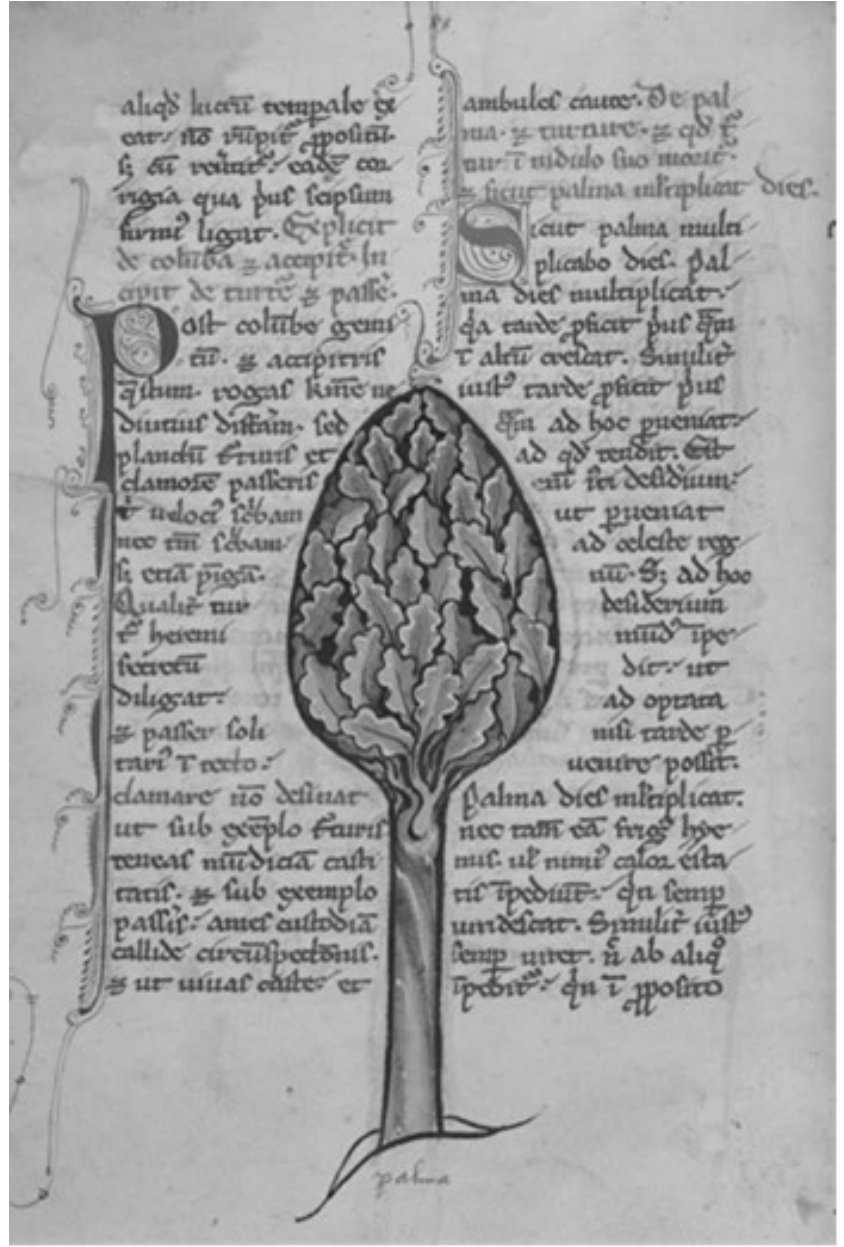 aliqd̕ lucrū temporale ex
eat. nō rūpit̕ ꝓpositū.
sꝫ cū reūtit̕. eadē cor
rigia qua p̕us seipsum
firmi᷒ ligat. Explicit
de colūba ⁊ accipit̕. In
cipit de turt̕e ⁊ passe̕.
Post colūbe gemi
tū. ⁊ accipitris
q̄stum. rogas km̄e ne
diutius differā. sed
planctū t̕turis et
clamorē passeris
t̕ veloci᷒ sc̕bam
nec tm̄ sc̕bam
sꝫ etiā pīgā.
Qualit̕ tur
t̕ heremi
secretū
diligat.
⁊ passer soli
tari᷒ ī tecto.
clamare nō desinat
ut sub exēplo t̕turis
teneas mūdiciā casti
tatis. ⁊ sub exemplo
passis̕. ames custodiā
callide circūspectōnis.
⁊ ut vivas caste. et
ambules caute. De pal
ma. ⁊ turture. ⁊ qd̕
tur ī nidulo suo morit̕.
⁊ sicut palma ml̕tiplicat dies.
Sicut palma multi
plicabo dies. Pal
ma dies multiplicat.
q̕a tarde ꝓficit p̕us q̄m
ī altū crescat. Similit̕
iust᷒ tarde ꝓficit p̕us
q̄m ad hoc ꝑveniat.
ad qd̕ tendit. Est
eni̅ s̅ti desideriū.
ut ꝑveniat
ad celeste reg
nū. Sꝫ ad hoc
desiderium
mūd᷒ īpe
dit. ut
ad optata
nisi tarde ꝑ
venire possit.
Palma dies ml̕tiplicat.
nec tam̄ eā frig᷒ hye
mis. ul̕ nimi᷒ calor esta
tis īpediūt. q̕n semꝑ
viridescat. Similit̕ iust᷒
semꝑ viret. n̄ ab aliq̊
īpedit̕. q̕n ī ꝓposito
palma